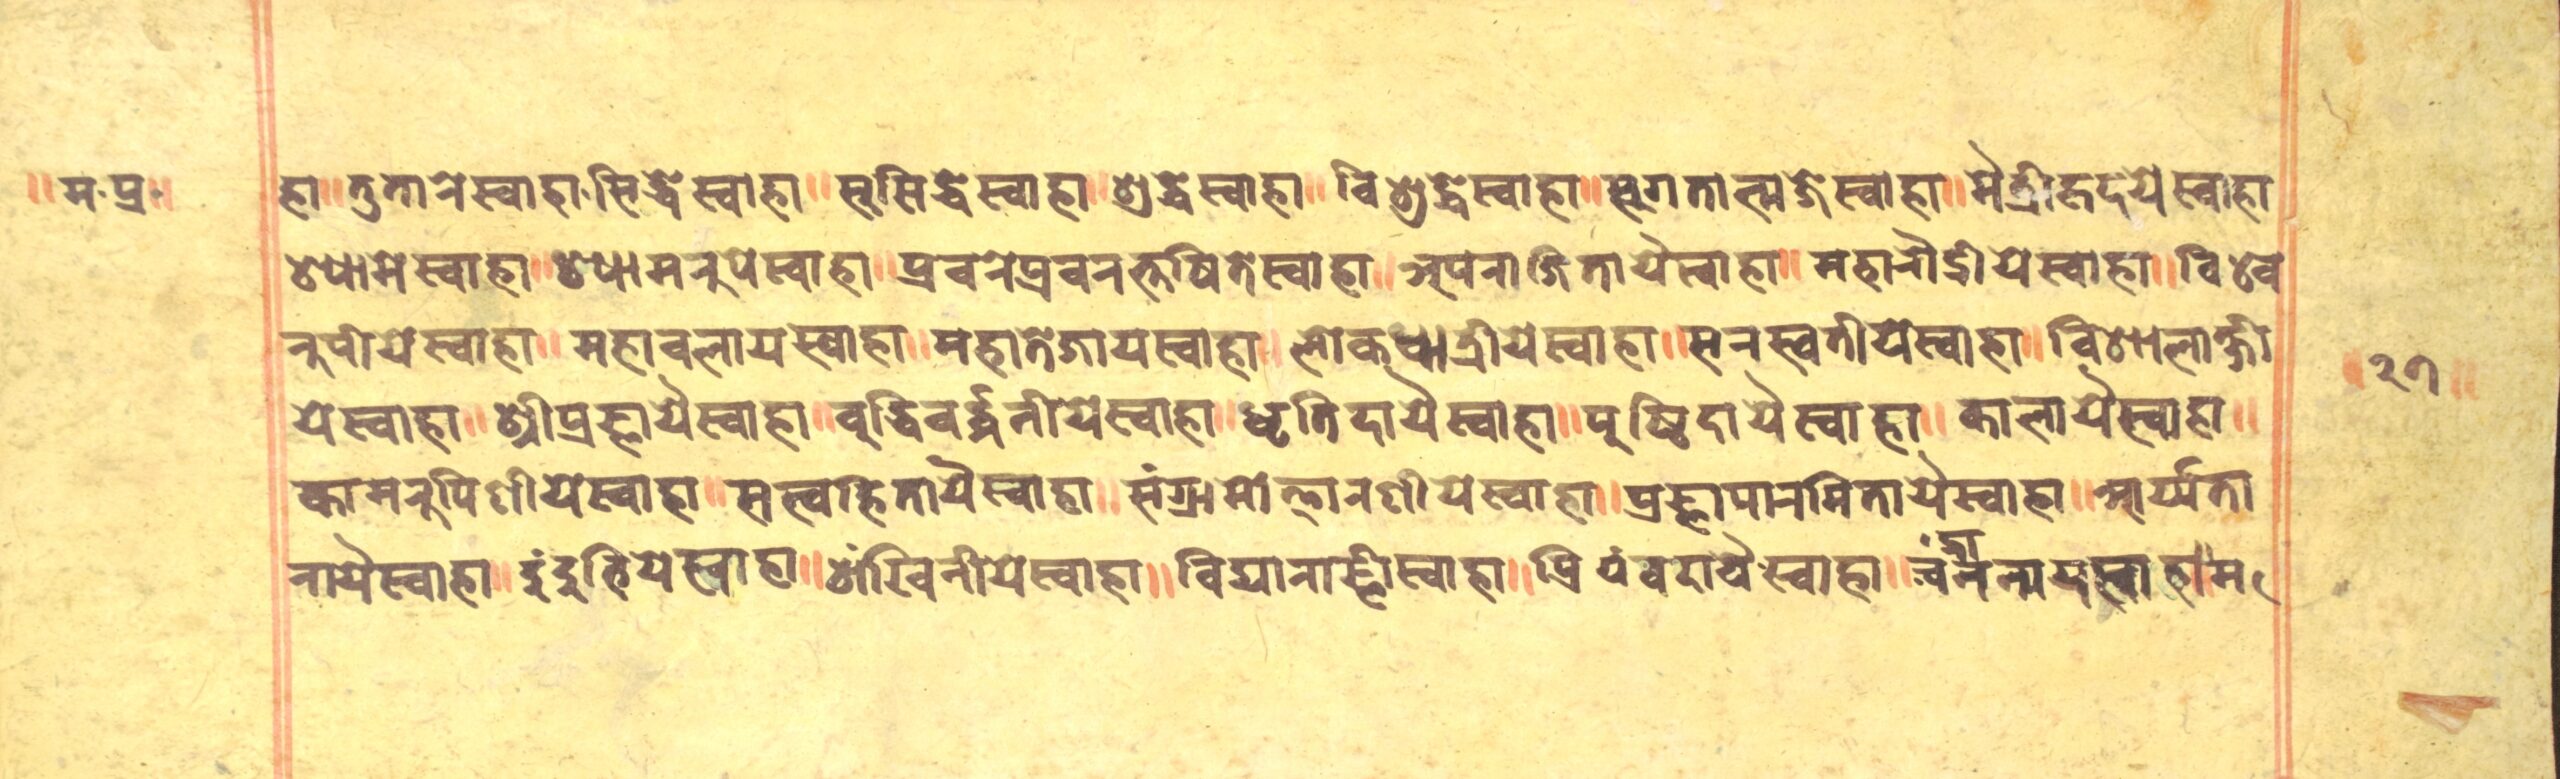 ॥ म · प्र · ॥
हा ॥ तुतानेस्वाहा · सिद्धेस्वाहा ॥ सुसिद्धेस्वाहा ॥ शुद्धेस्वाहा ॥ विशुद्धेस्वाहा ॥ सुगतात्मजेस्वाहा ॥ मैत्रीहृदयेस्वाहा
श्यामेस्वाहा ॥ श्यामनुपेस्वाहा ॥ प्रवनेप्रवन स्वाहा ॥ अपनाजितायैस्वाहा ॥ महानौद्रीयेस्वाहा ॥ विश्व
नुपीयेस्वाहा ॥ महावलायस्वाहा ॥ महातेजायस्वाहा ॥ लोकधात्रीयेस्वाहा ॥ सनस्वतीयेस्वाहा ॥ विशालाक्षी
येस्वाहा ॥ श्रीप्रज्ञायैस्वाहा ॥ वुद्धिवर्द्धनीयेस्वाहा ॥ धृतिदायैस्वाहा ॥ पुष्टिदायैस्वाहा ॥ कालायैस्वाहा ॥
कामनुपिणीयेस्वाहा ॥ सत्वहितायैस्वाहा ॥ संग्रामोत्तानणीयेस्वाहा ॥ प्रज्ञापानमितायैस्वाहा ॥ आर्य्यता
नायैस्वाहा ॥ दुंदुहियेस्वाहा ॥ शंखिनीयेस्वाहा ॥ विद्यानाज्ञीस्वाहा ॥ प्रियंवदायैस्वाहा ॥ स्वाहा ॥ म
॥ २७ ॥